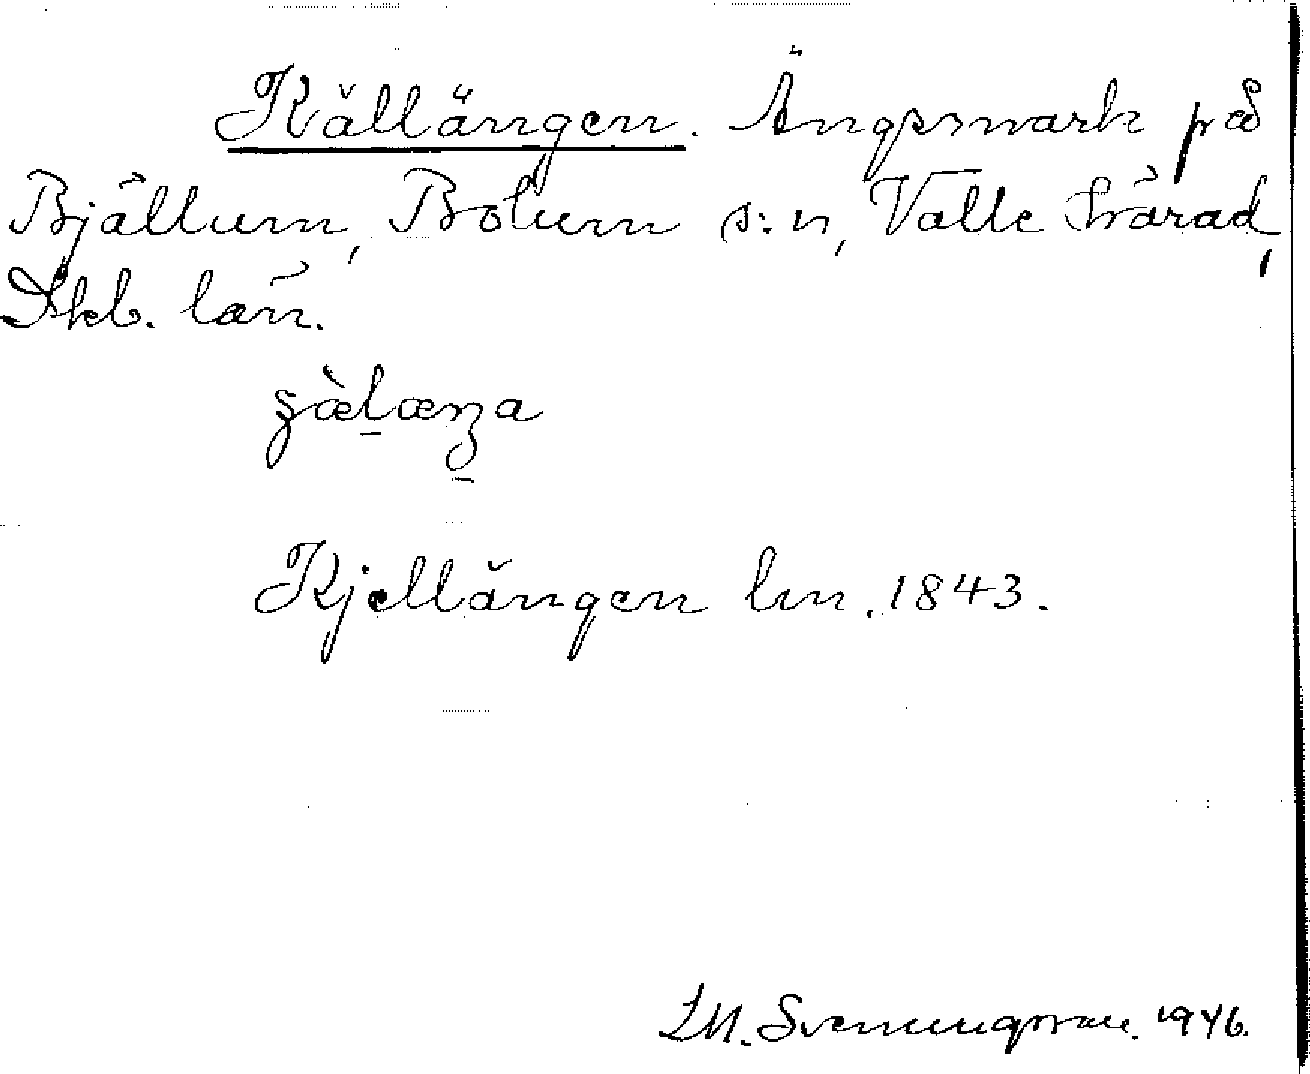 Källängen. Ängsmark på
Bjällum, Bolum s:n, Valle härad,
Skb. län.
Kjellängen lm. 1843.
LM. Svenungsson. 1946.